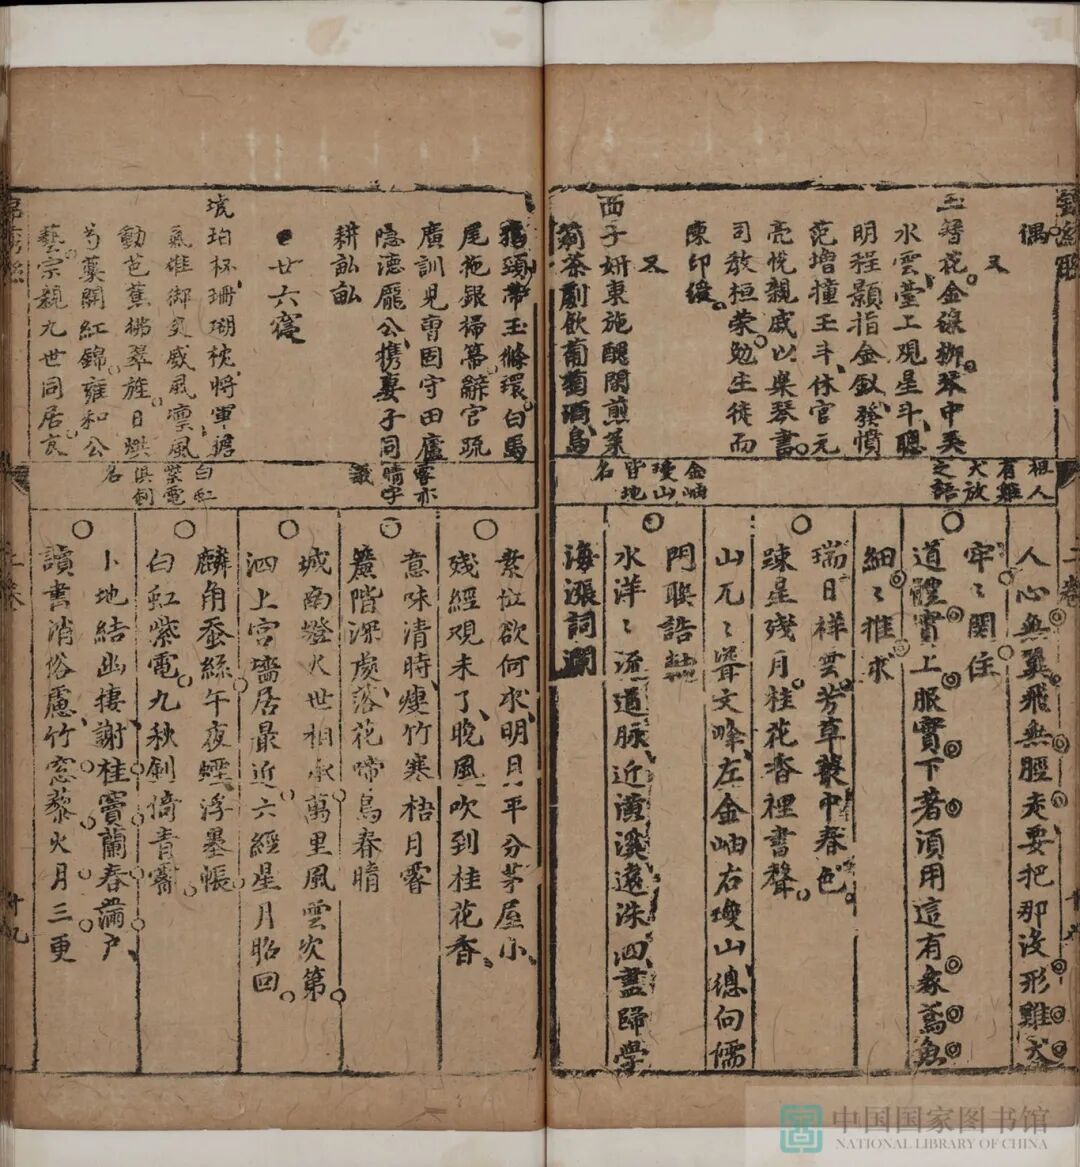 偶
又
玉簪花金磉
水雲臺上現星斗聰
明程顥指金釵發憤
范增撞玉斗休官元
亮悅親戚以樂琴書
司教桓榮勉生徒而
陳印綬
又
西子妍東施醜閑煎茱
萸茶劇飲葡萄酒烏
根人
有雞
犬放
之語
金岫
瓊山
皆地
名
人心無翼飛無脛走要把那沒形雞犬
牢〻関住
道體實上服實下著須用這有象鳶魚
細〻推求
瑞日祥雲芳草叢中春色
踈星殘月桂花香裡書聲
山兀〻聳文峰左金岫右瓊山總向儒
門聯誥軸
水洋〻流道脉近濂溪遠洙泗盡歸學
海漲詞瀾
鶴頸帶玉絛環白馬
尾拖銀掃箒辭官疏
廣訓兒曹固守田廬
隱德龐公携妻子同
耕畒畒
廿六寔
琥珀杯珊瑚枕將軍
氣雄御㚑威風凛風
動芭蕉拂翠旌日烘
芍藥開紅錦雍和公
藝宗親九世同居衣
霽亦
晴字
義
白虹
紫電
俱劍
名
素位欲何求明月平分茅屋小
殘經覌未了晚風吹到桂花香
意味清時瘦竹寒梧月霽
簾階深處落花啼鳥春晴
城南燈火世相承萬里風雲次第
泗上宮墻居最近六經星月昭回
麟角蚕絲午夜蟶浮墨帳
白虹紫電九秋劍倚青霄
卜地結幽棲謝桂竇蘭春滿戶
讀書消俗慮竹窓藜火月三更
二卷
中国国家图书馆
NATIONAL LIBRARY OF CHINA